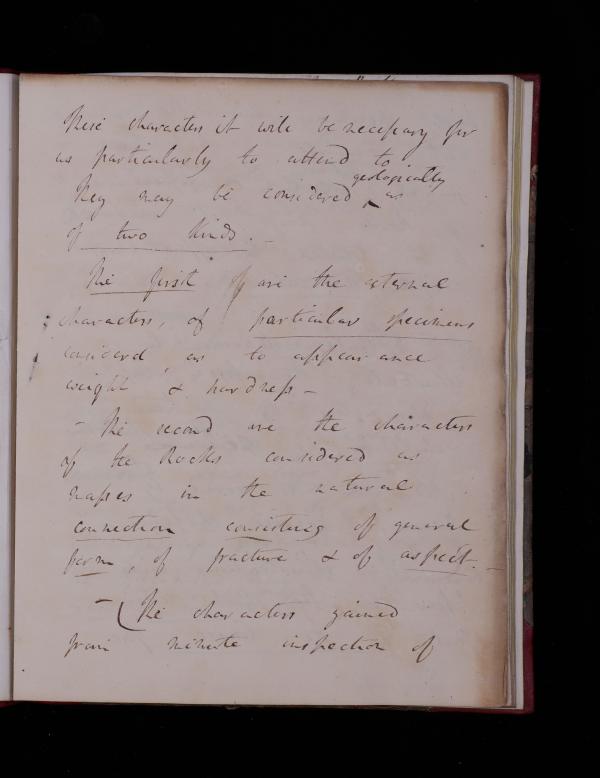 These characters it will be necessary for
us particularly to attend to
geologically
They may be considered as
of two kinds. -
The first of are the external
characters, of particular specimens
considered, as to appearance
weight & hardness -
- The second are the characters
of the Rocks considered as
masses in the natural
connection consisting of general
form, of fracture & of aspect. -
- (The characters gained
from minute inspection of